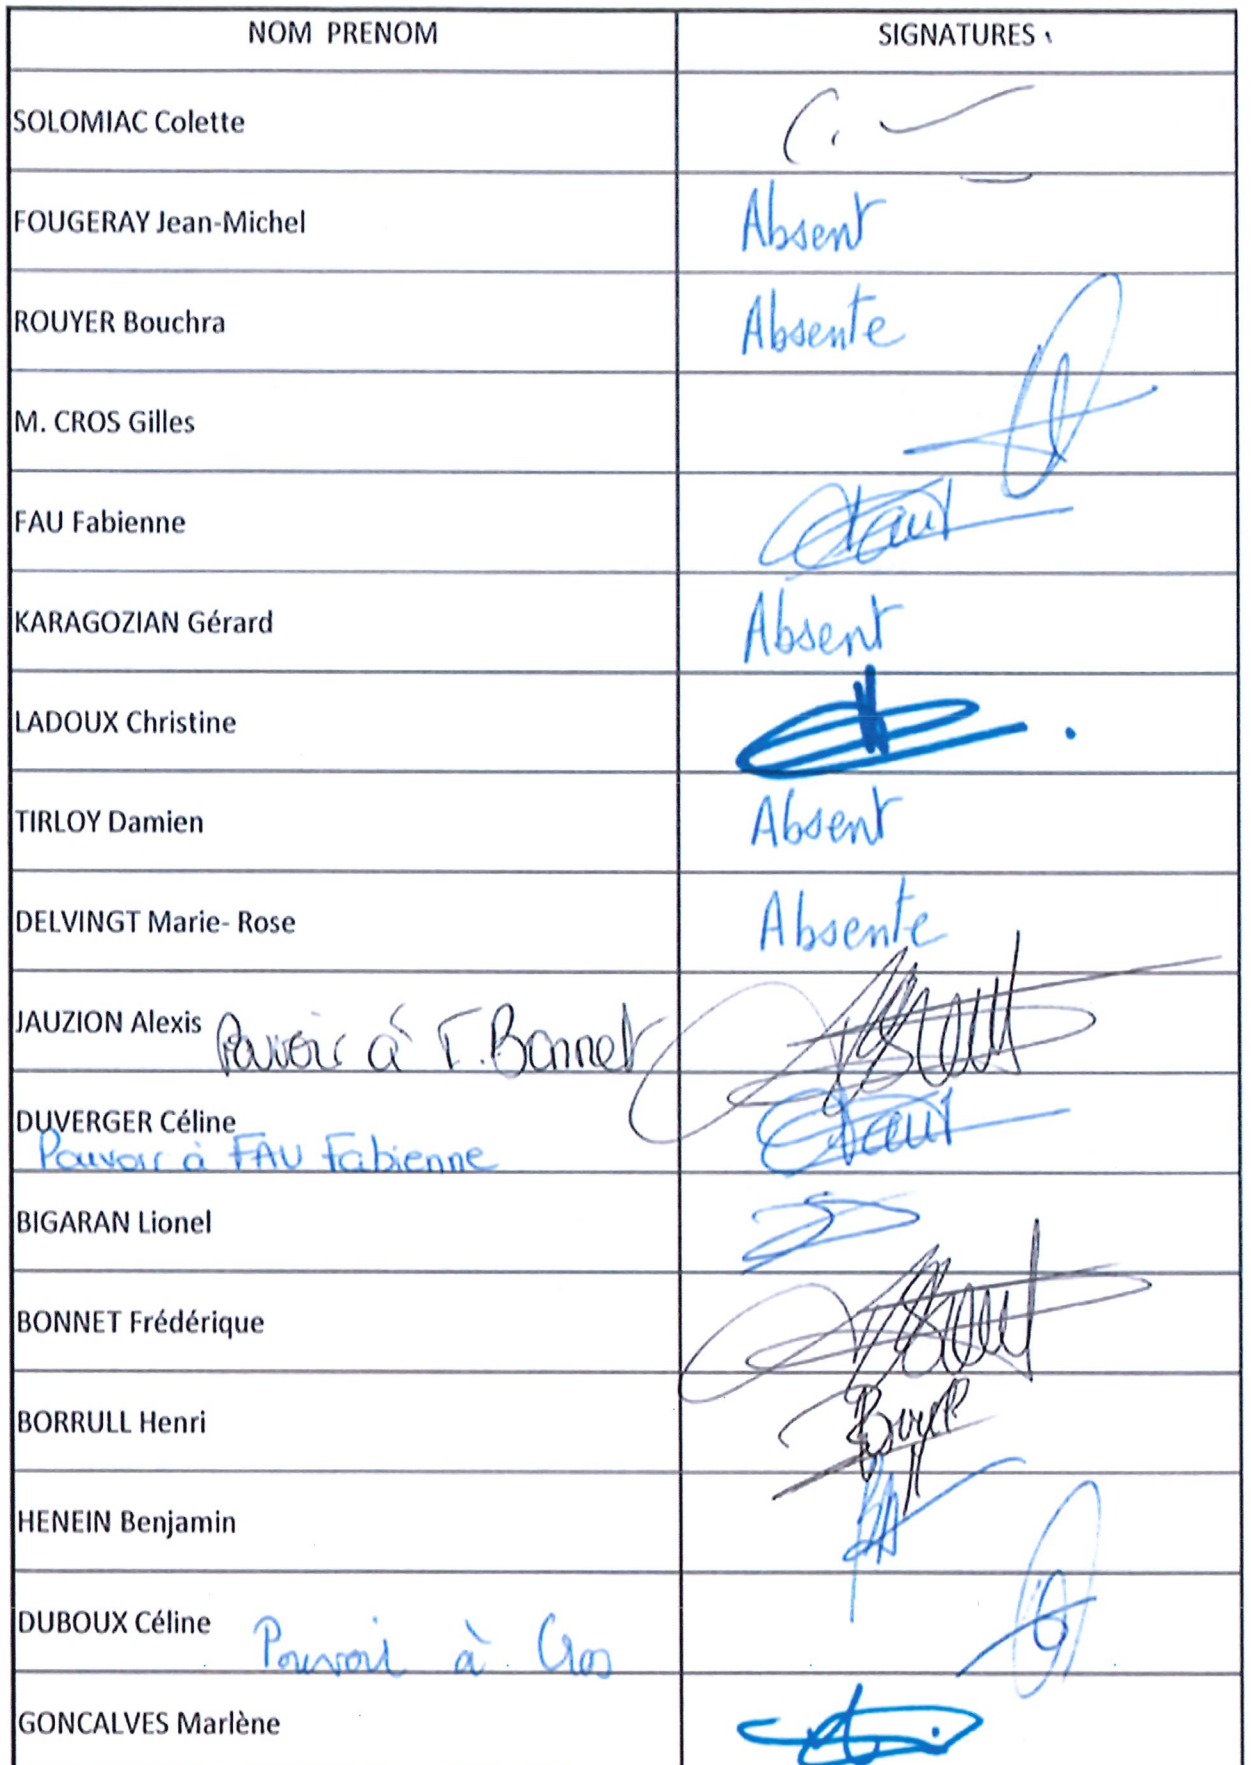 NOM PRENOM
SIGNATURES
SOLOMIAC Colette
FOUGERAY Jean-Michel
Absent
ROUYER Bouchra
Absente
M. CROS Gilles
FAU Fabienne
KARAGOZIAN Gérard
Absent
LADOUX Christine
TIRLOY Damien
Absent
DELVINGT Marie- Rose
Absente
JAUZION Alexis
Pouvoir à F. Bonnet
DUVERGER Céline
Pouvoir à FAU Fabienne
BIGARAN Lionel
BONNET Frédérique
BORRULL Henri
HENEIN Benjamin
DUBOUX Céline
Pouvoir à Cros
GONCALVES Marlène